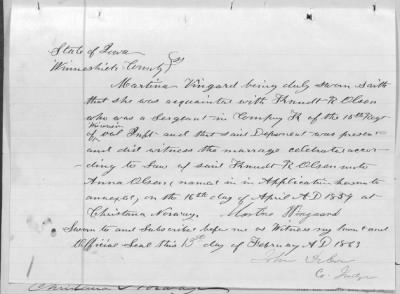 State of Iowa
Winneshiek County } SS
Martina Vingard being duly sworn saith
that she was acquainted with Knudt K Olsen
who was a Sergeant in Compny K of the 15th Regt
Wisconsin
of Vol Inft- and that said Deponent was present
and did witness the marriage celebrated accor-
ding to Law of said Knudt K Olsen unto
Anna Olsen, named in in Application hereunto
annexed, on the 16th day of April AD 1859 at
Christiana Norway. Martina Vingaard
Sworn to and Subscribed before me as Witness my hand and
Official Seal this 13th day of February AD 1863
Co. Judge